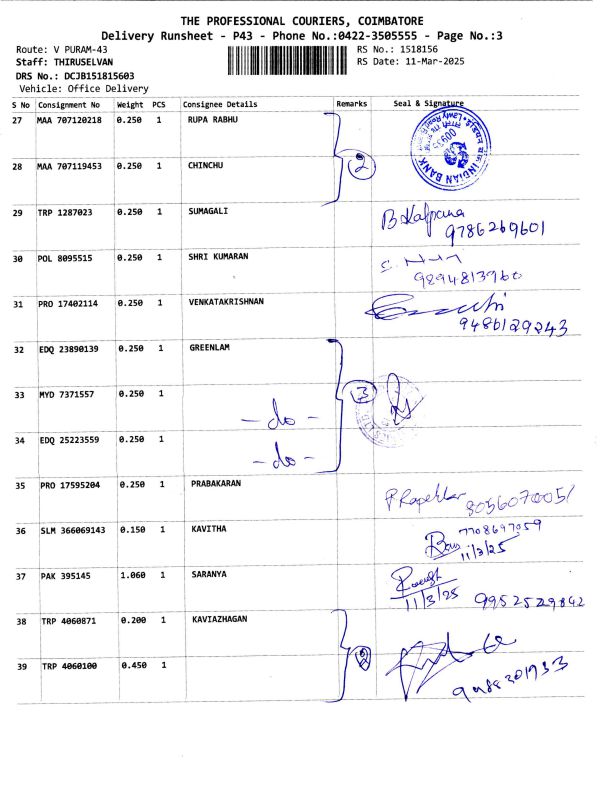 THE PROFESSIONAL COURIERS, COIMBATORE
Delivery Runsheet - P43 - Phone No.:0422-3505555 - Page No.:3
Route: V PURAM-43 RS No.: 1518156
Staff: THIRUSELVAN RS Date: 11-Mar-2025
DRS No.: DCJB151815603
Vehicle: Office Delivery
S No Consignment No Weight PCS Consignee Details Remarks Seal & Signature
27 MAA 707120218 0.250 1 RUPA RABHU
INDIAN BANK
28 MAA 707119453 0.250 1 CHINCHU 2
29 TRP 1287023 0.250 1 SUMAGALI B Kalpana
9786269601
30 POL 8095515 0.250 1 SHRI KUMARAN
9894813960
31 PRO 17402114 0.250 1 VENKATAKRISHNAN
9486129243
32 EDQ 23890139 0.250 1 GREENLAM
33 MYD 7371557 0.250 1 3
- do -
34 EDQ 25223559 0.250 1
- do -
35 PRO 17595204 0.250 1 PRABAKARAN
8056070051
36 SLM 366069143 0.150 1 KAVITHA 7708697059
11/3/25
37 PAK 395145 1.060 1 SARANYA
11/3/25 9952529842
38 TRP 4060871 0.200 1 KAVIAZHAGAN
39 TRP 4060100 0.450 1 2